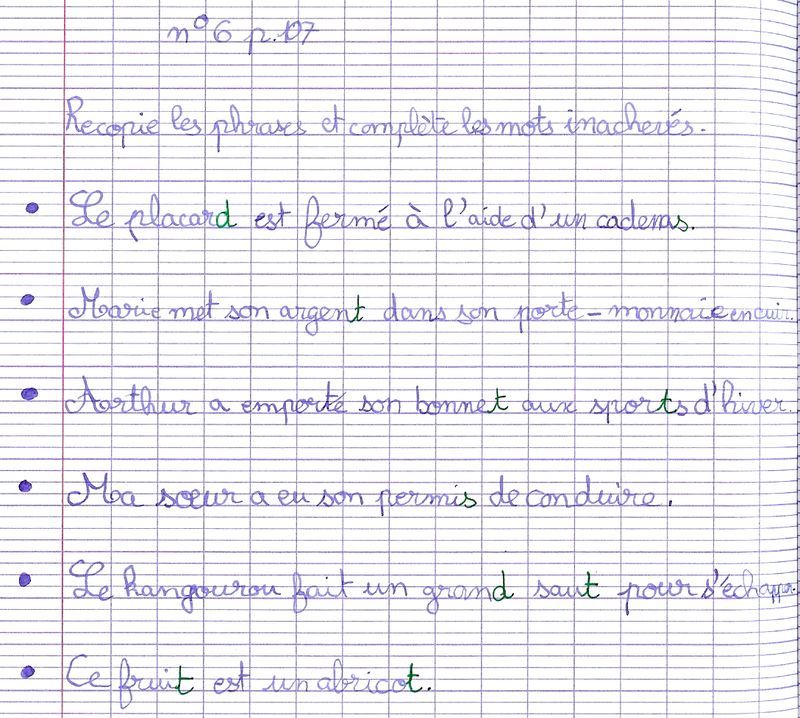 n°6 p.107
Recopie les phrases et complète les mots inachevés.
• Le placard est fermé à l'aide d'un cadenas.
• Marie met son argent dans son porte-monnaie en cuir.
• Aorthur a emporté son bonnet aux sports d'hiver.
• Ma sœur a eu son permis de conduire.
• Le kangourou fait un grand saut pour s'échapper.
• Ce fruit est un abricot.